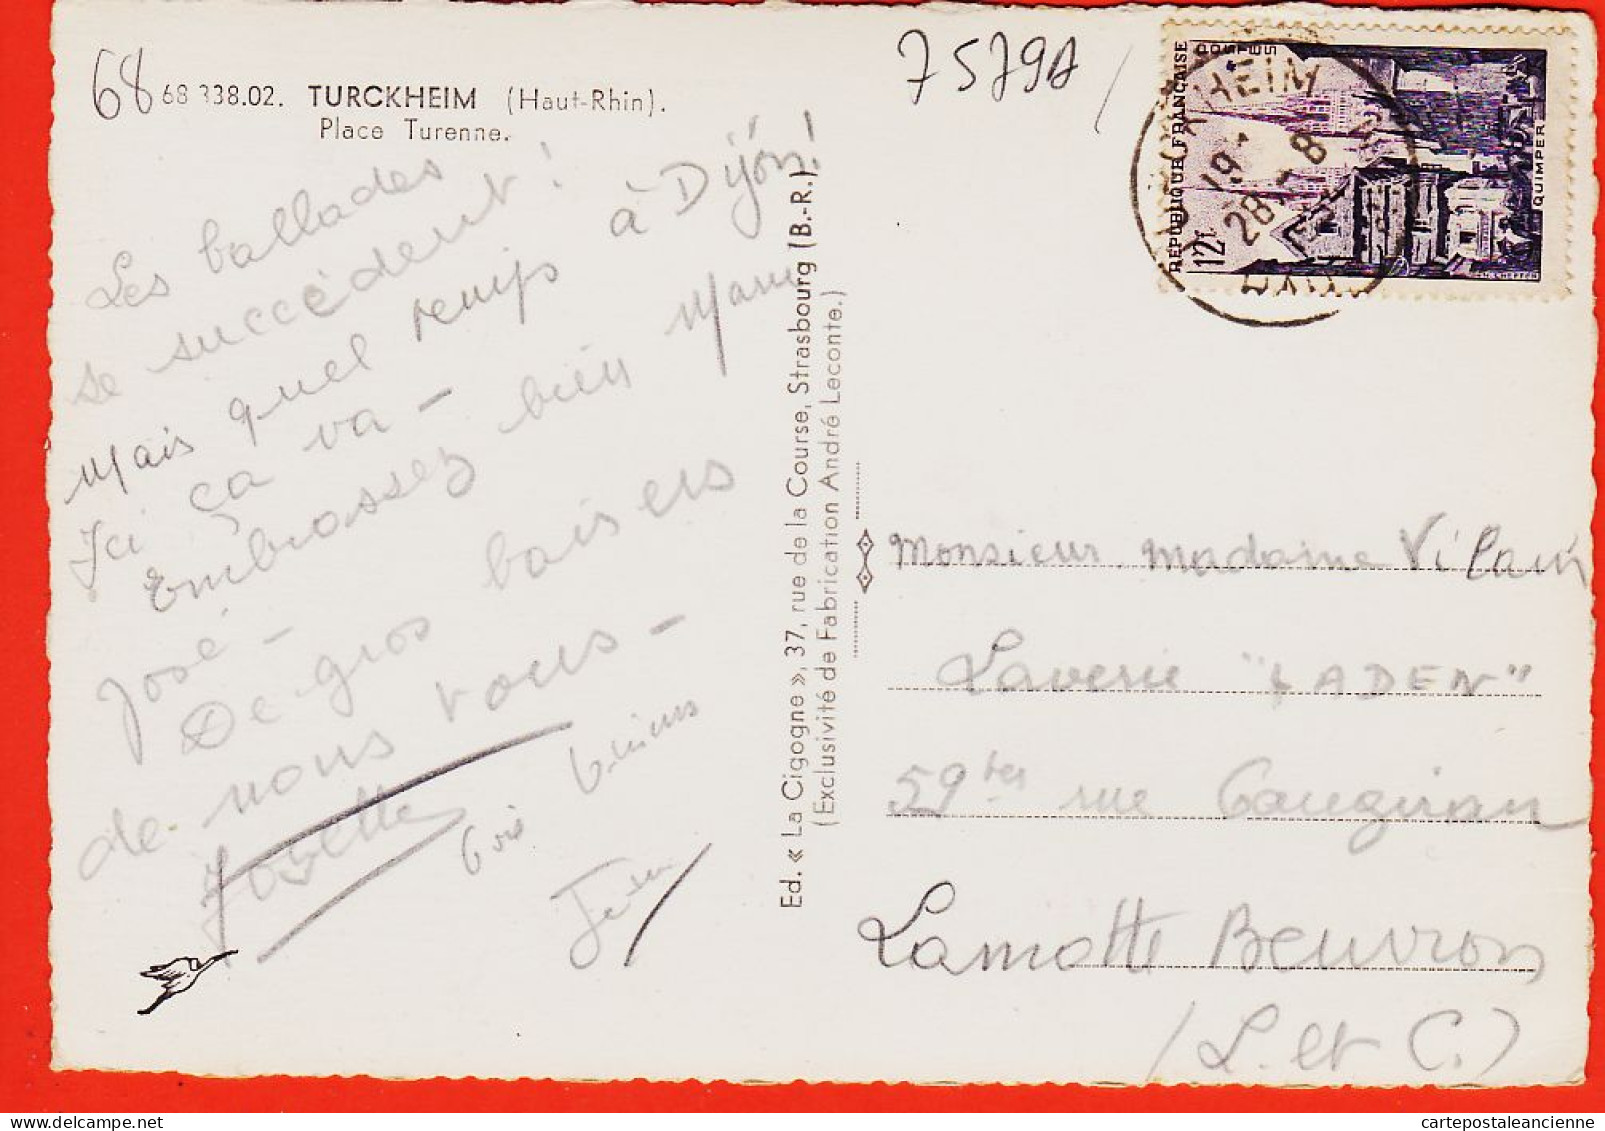 68
68 338.02. TURCKHEIM (Haut-Rhin).
Place Turenne.
7579A
Les ballades
se succèdent!
Mais quel temps à Dijon!
Ici ça va -
Embrassez bien Mam
José -
De gros baisers
de nous vous -
Josette
Ed. « La Cigogne », 37, rue de la Course, Strasbourg (B.-R.)
(Exclusivité de Fabrication André Leconte.)
REPUBLIQUE FRANÇAISE
POSTES
12f
QUIMPER
HEIM
19
28 8
Monsieur Madame Vilain
Laverie "LADEN"
59 ter rue
Lamotte Beuvron
(L. et C.)
cartepostaleancienne.com